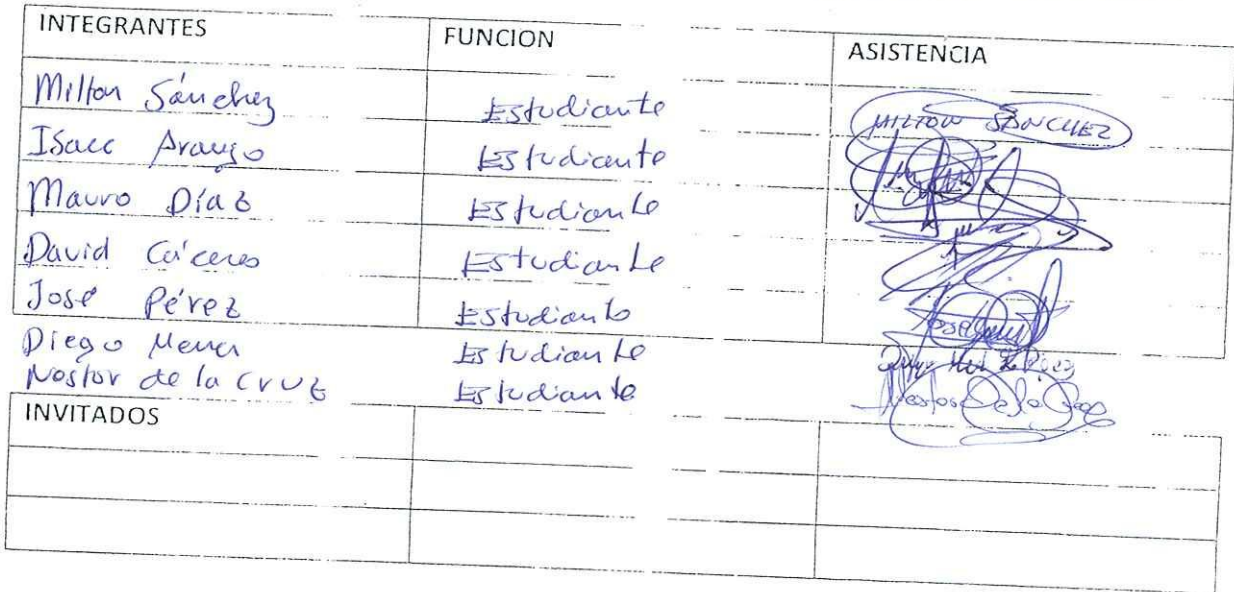 INTEGRANTES FUNCION ASISTENCIA
Milton Sánchez Estudiante MILTON SANCHEZ
Isacc Araujo Estudiante
Mauro Díaz Estudiante
David Cáceres Estudiante
José Pérez Estudiante José
Diego Mena Estudiante
Nestor de la Cruz Estudiante Nestor De la Cruz
INVITADOS